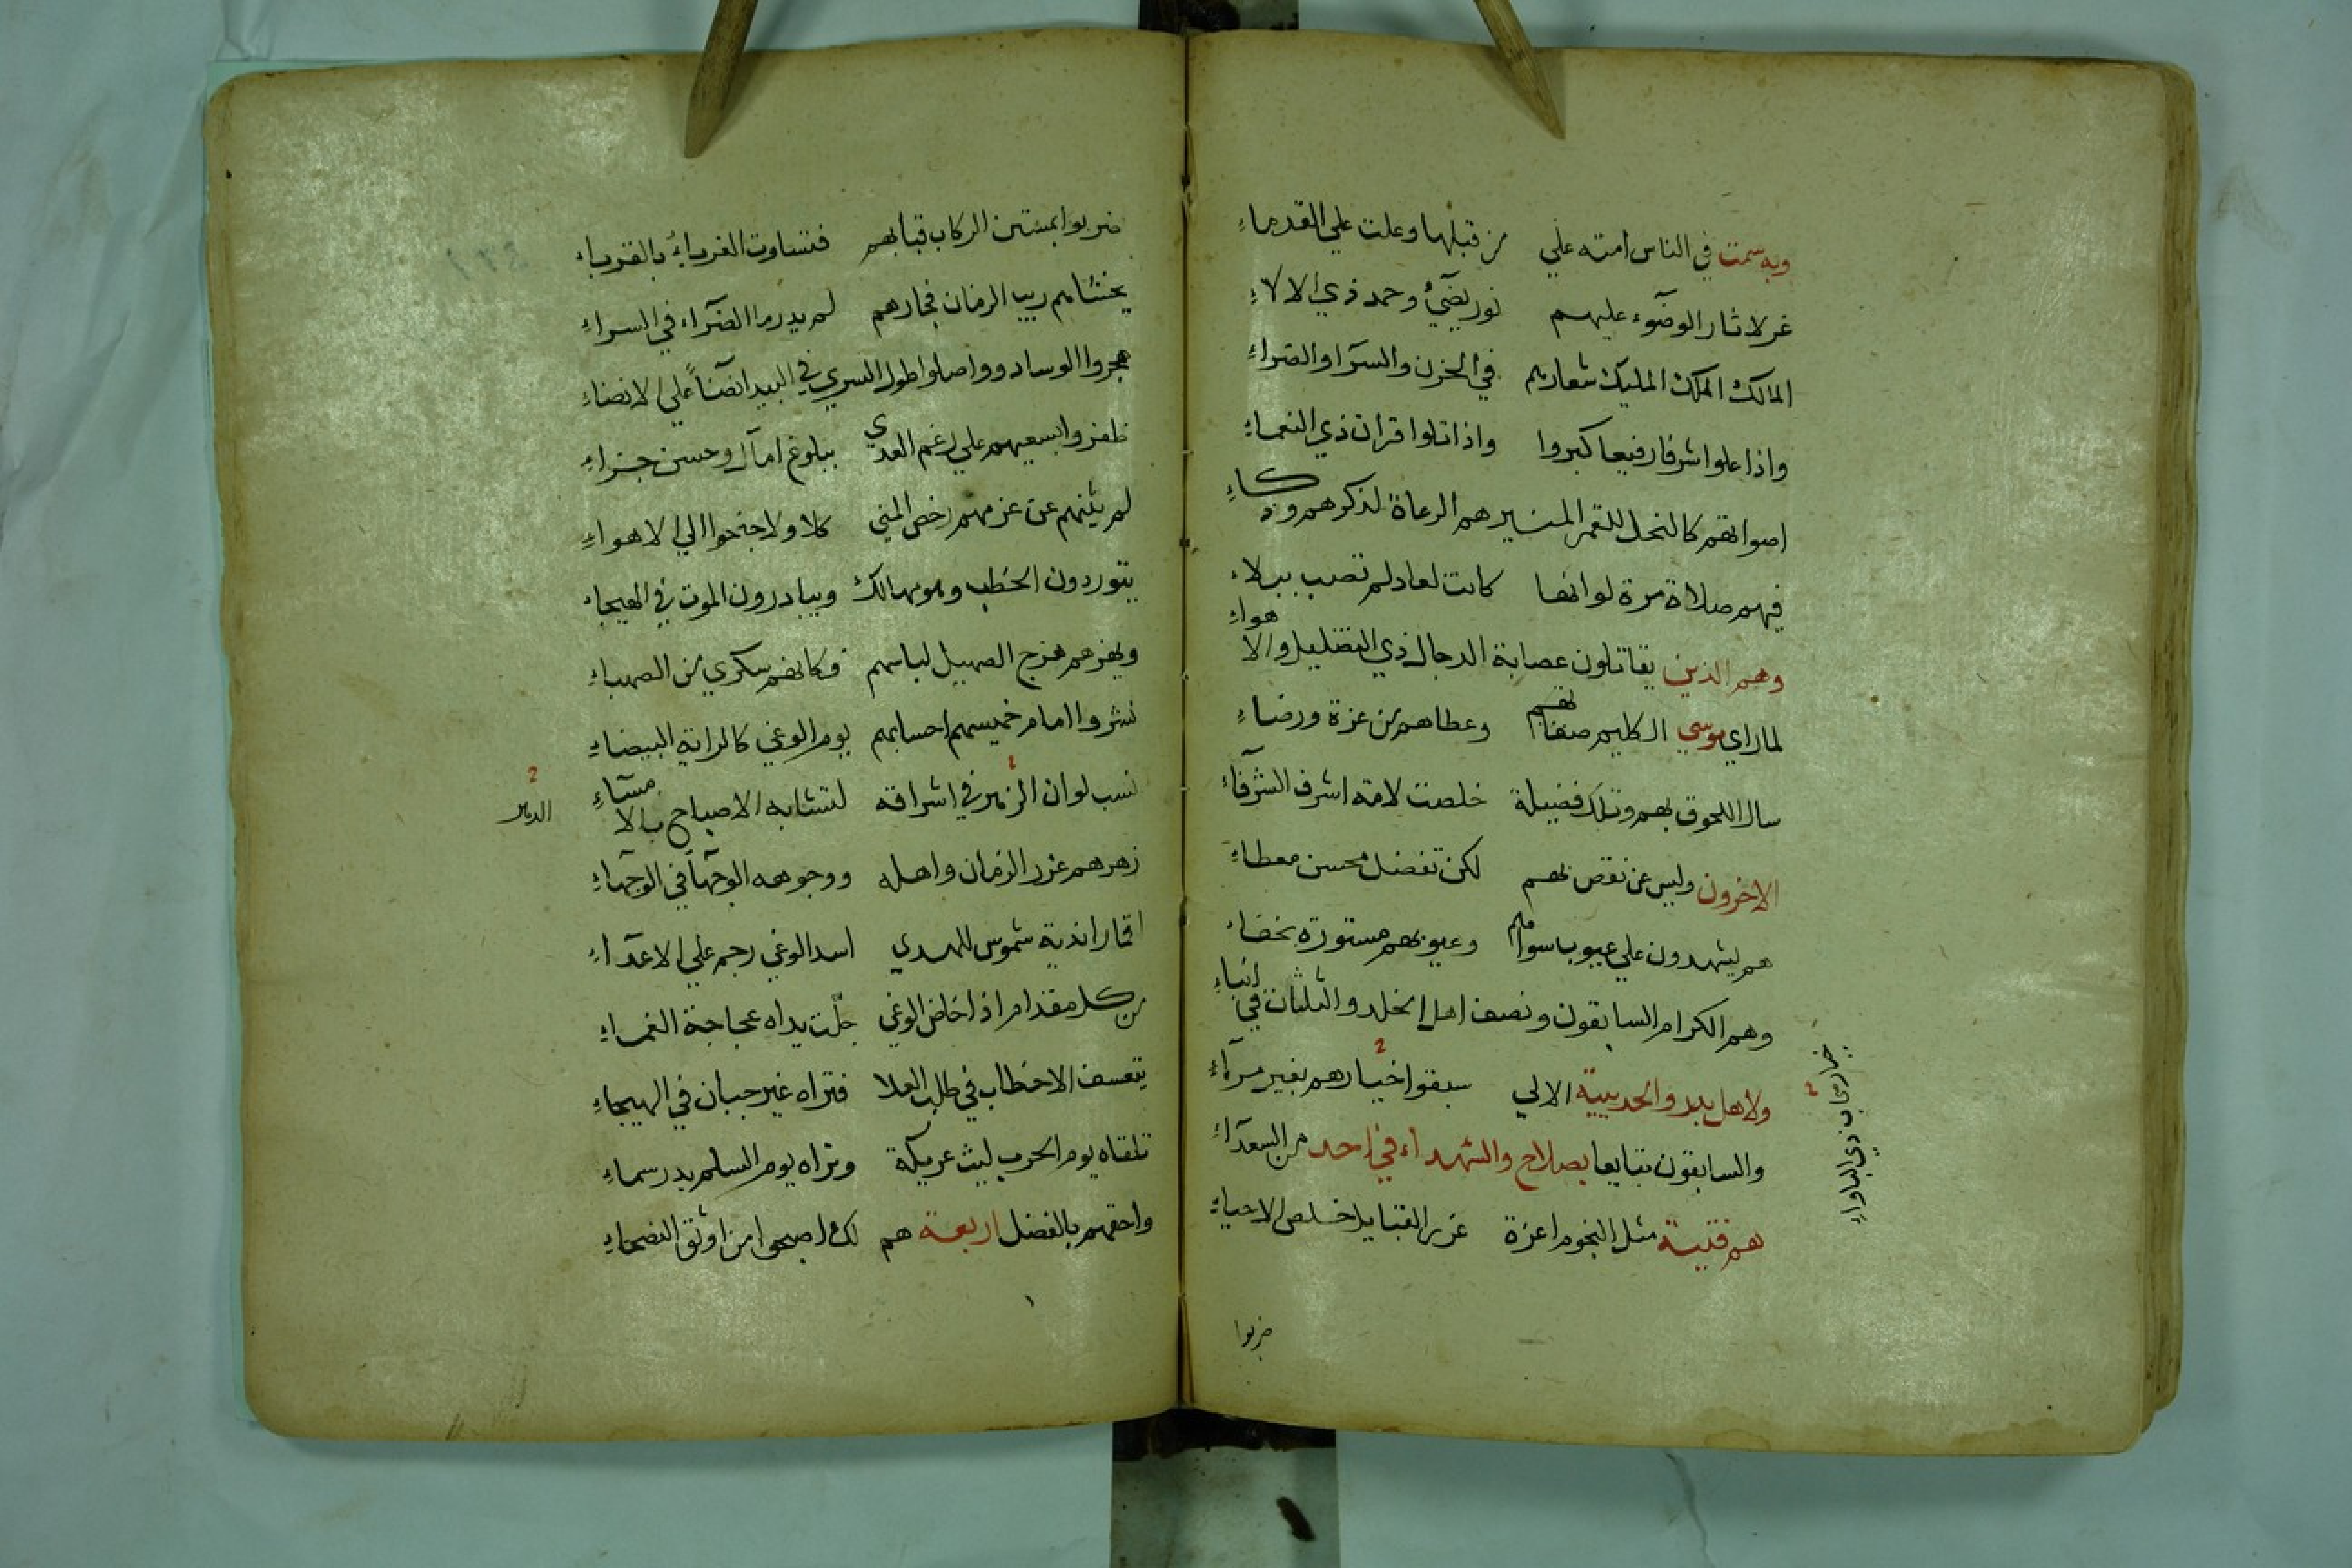 وبه سمت في الناس امته علي من قبلها وعلت علي القدماءِ
غر لاثار الوضوء عليهم نور يضيُ وحمد ذي الالاءِ
المالك الملك المليك شعارهم في الحزن والسرا والضراءِ
واذا علوا شرفا رفيعا كبروا واذا تلوا قران ذي النعماءِ
اصواتهم كالنحل للقمر المنير هم الرعاة لذكرهم وذكاءِ
فيهم صلاة مرة لو انها كانت لعاد لم تصب ببلاء
وهم الذين يقاتلون عصابة الدجال ذي التضليل والاهواءِ
لما راي موسي الكليم صفاتهم وعطاهم من عزة ورضاءِ
سال اللحوق بهم وتلك فضيلة خلصت لامة اشرف الشرفآءِ
الاخرون وليس عن نقص لهم لكن تفضل محسن معطاءِ
هم يشهدون علي عيوب سواهم وعيوبهم مستورة بخفاء
وهم الكرام السابقون ونصف اهل الخلد والثلثان في انباءِ
ولاهل بدر والحديبية الالي سبقوا خيارهم بغير مرآءِ
خيار صحاب ذي الباواءِ
والسابقون تتابعا بصلاح والشهداء في احد من السعدآءِ
هم فتية مثل النجوم اعزة غر القبايل خلص الاحياءِ
ضربوا
ضربوا بمستن الركاب قبابهم فتساوت الغرباءُ بالقرباءِ
يخشاهم ريب الزمان فجارهم لم يدر ما الضرآء في السراءِ
هجروا الوساد وواصلوا طول السري في البيد انضآءً علي الانضاءِ
ظفروا بسعيهم علي رغم العدي ببلوغ امآل وحسن جزاءِ
لم يثنهم عن عزمهم رخص المني كلا ولا جنحوا الي الاهواءِ
يتوردون الخطب وهو مهالك ويبادرون الموت في الهيجاء
ويهزهم هزج الصهيل لباسهم فكانهم سكري من الصهباءِ
نشروا امام خميسهم احسابهم يوم الوغي كالراية البيضاءِ
نسب لو ان الزهر في اشراقه لتشابه الاصباح بالامسآءِ
الدهر
زهرهم غرر الزمان واهله ووجوهه الوجهآ في الوجهاءِ
اقمار اندية شموس للهدي اسد الوغي رجم علي الاعدآءِ
من كل مقدام اذا خاض الوغي جلّت يداه عجاجة الغماءِ
يتعسف الاخطاب في طلب العلا فتراه غير جبان في الهيجاءِ
تلقاه يوم الحرب ليث عريكة وتراه يوم السلم بدر سماءِ
واحقهم بالفضل اربعة هم لك اصبحوا من اوثق النصحاءِ